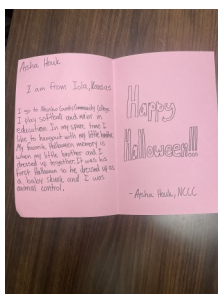 Aisha Houk
I am from Iola, Kansas
I go to Neosho County Community College
I play softball and major in
education. In my spare time I
like to hangout with my little brother.
My favorite Halloween memory is
when my little brother and I
dressed up together. It was his
first Halloween so he dressed up as
a baby skunk and I was
animal control.
Happy
Halloween!!!
- Aisha Houk, NCCC